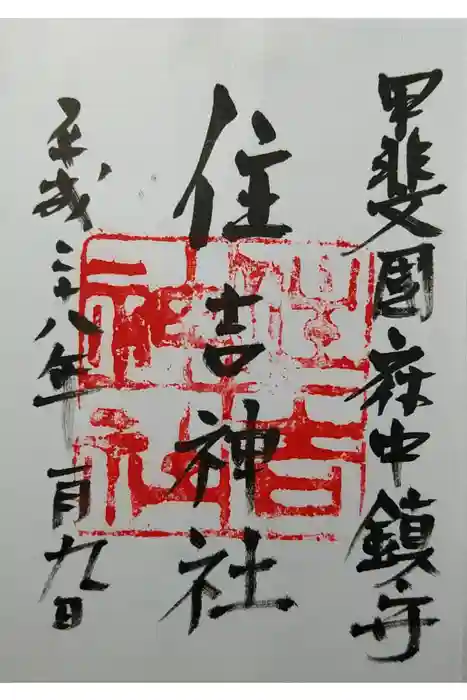 甲斐國府中鎮守
住吉神社
平成二十八年一月九日
住吉神社